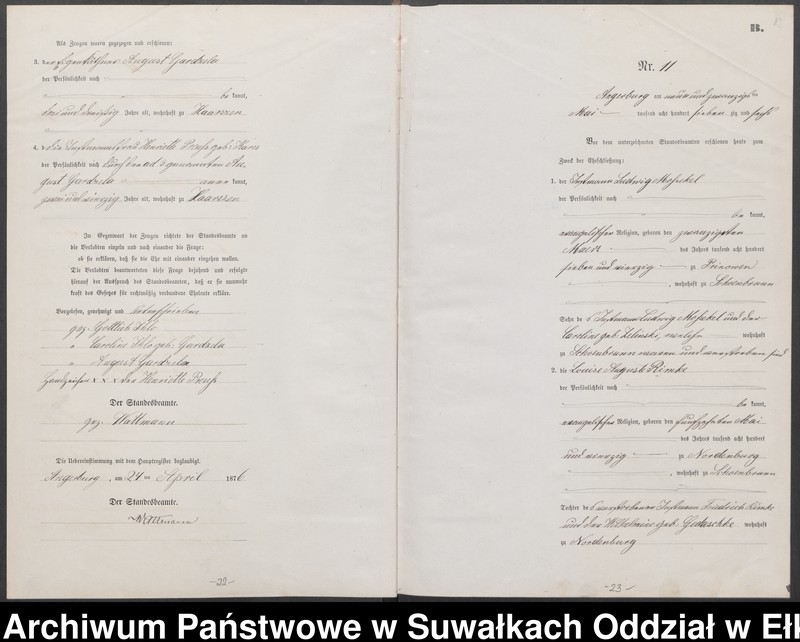 Als Zeugen waren zugezogen und erschienen:
3. der August Gardzela
der Persönlichkeit nach
be kannt,
Jahre alt, wohnhaft zu Haarszen
4. die Henriette geb.
der Persönlichkeit nach durch den ad 3 genannten Au-
gust Gardzela kannt,
Jahre alt, wohnhaft zu Haarszen
In Gegenwart der Zeugen richtete der Standesbeamte an
die Verlobten einzeln und nach einander die Frage:
ob sie erklären, daß sie die Ehe mit einander eingehen wollen.
Die Verlobten beantworteten diese Frage bejahend und erfolgte
hierauf der Ausspruch des Standesbeamten, daß er sie nunmehr
kraft des Gesetzes für rechtmäßig verbundene Eheleute erkläre.
Vorgelesen, genehmigt und unterschrieben
gez. Gottlieb
" Caroline geb. Gardzela
" August Gardzela
Handzeichen x x x der Henriette
Der Standesbeamte.
gez. Wattmann
Die Uebereinstimmung mit dem Hauptregister beglaubigt.
Angerburg, am 24ten April 1876
Der Standesbeamte.
Wattmann
-22-
B.
Nr. 11
Angerburg am neun und zwanzigsten
Mai tausend acht hundert sieben zig und sechs
Vor dem unterzeichneten Standesbeamten erschienen heute zum
Zweck der Eheschließung:
1. der Instmann Ludwig
der Persönlichkeit nach
be kannt,
evangelischer Religion, geboren den zwanzigsten
Maerz des Jahres tausend acht hundert
sieben und vierzig zu Prinowen
, wohnhaft zu Schoenbrunn
Sohn de s Instmann Ludwig und der
Caroline geb. Zelinski, wohnhaft
zu Schoenbrunn waren und verstorben sind
2. die Louise Auguste Rimke
der Persönlichkeit nach
be kannt,
evangelischer Religion, geboren den fünfzehnten Mai
des Jahres tausend acht hundert
und vierzig zu Nordenburg
, wohnhaft zu Schoenbrunn
Tochter de s verstorbenen Instmann Friedrich Rimke
und der Wilhelmine geb. wohnhaft
zu Nordenburg
-23-
Archiwum Państwowe w Suwałkach Oddział w Eł